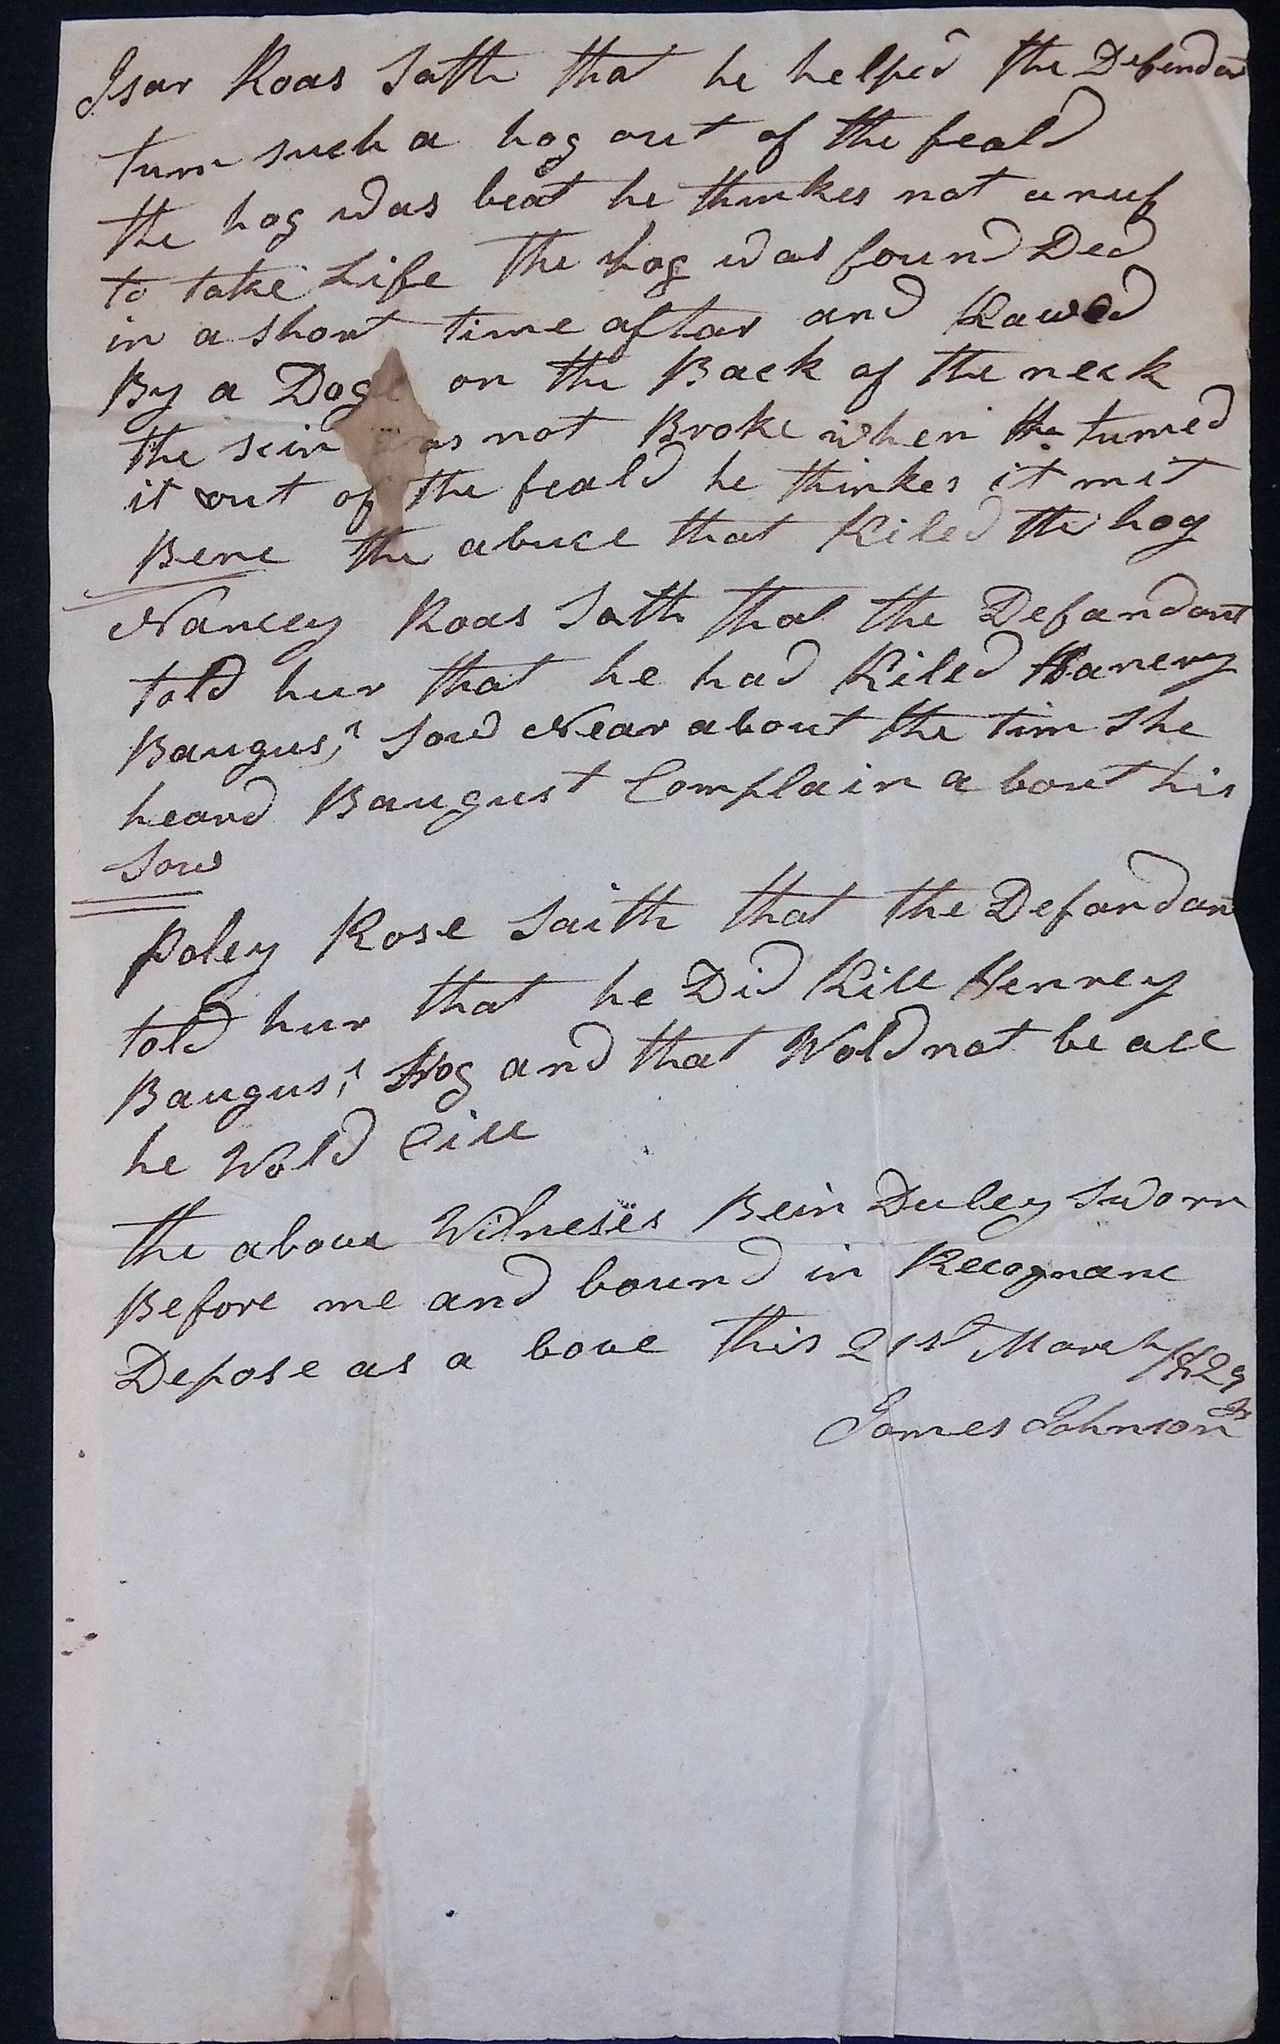 Isar Roas Sath that he helped the Defendan
turn such a hog out of the feald
the hog was beat he thinkes not anuf
to take Life the hog was found Ded
in a short time aftar and Kawed
By a Doge on the Back of the neck
the scin was not Broke when the turned
it out of the feald he thinkes it mit
Bene the abuce that Kiled the hog
Nancey Roas Sath that the Defandant
told hur that he had Kiled Hanery
Baugus,s Sow Near about the tim She
heard Baugust Complain a bout his
Sow
Poley Rose Saith that the Defandan
told hur that he Did Kill Henrey
Baugus,s Hog and that Wold not be all
he Wold Cill
the above Witneses Bein Duley Sworn
Before me and bound in Recognanc
Depose as a bove this 21st March 1829
James Johnson Jr